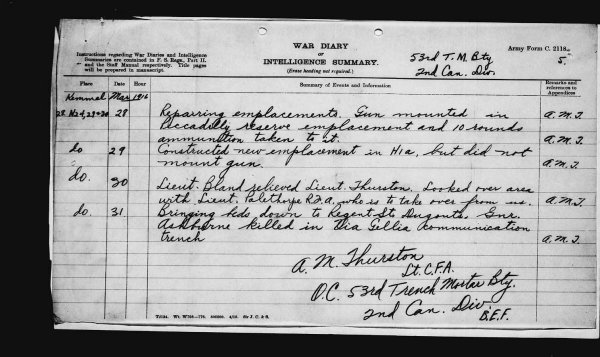 WAR DIARY
or
INTELLIGENCE SUMMARY.
(Erase heading not required.)
Instructions regarding War Diaries and Intelligence
Summaries are contained in F. S. Regs., Part II.
and the Staff Manual respectively. Title pages
will be prepared in manuscript.
53rd T. M. Bty
2nd Can. Div.
Army Form C. 2118.
5.
Place Date Hour Summary of Events and Information Remarks and references to Appendices
Kemmel Mar 1916
28 Repairing emplacements. Gun mounted in A.M.T.
Piccadilly reserve emplacement and 10 rounds
ammunition taken to it. A.M.T.
do 29 Constructed new emplacement in H1a, but did not
mount gun. A.M.T.
do. 30 Lieut. Bland relieved Lieut. Thurston. Looked over area
with Lieut. Palethorpe R.F.A. who is to take over from us. A.M.T.
do. 31 Bringing beds down to Regent St. Dugouts. Gnr.
Ashburne killed in Via Gellia communication
trench A.M.T.
A. M. Thurston
Lt. C.F.A.
O.C. 53rd Trench Mortar Bty.
2nd Can. Div.
B.E.F.